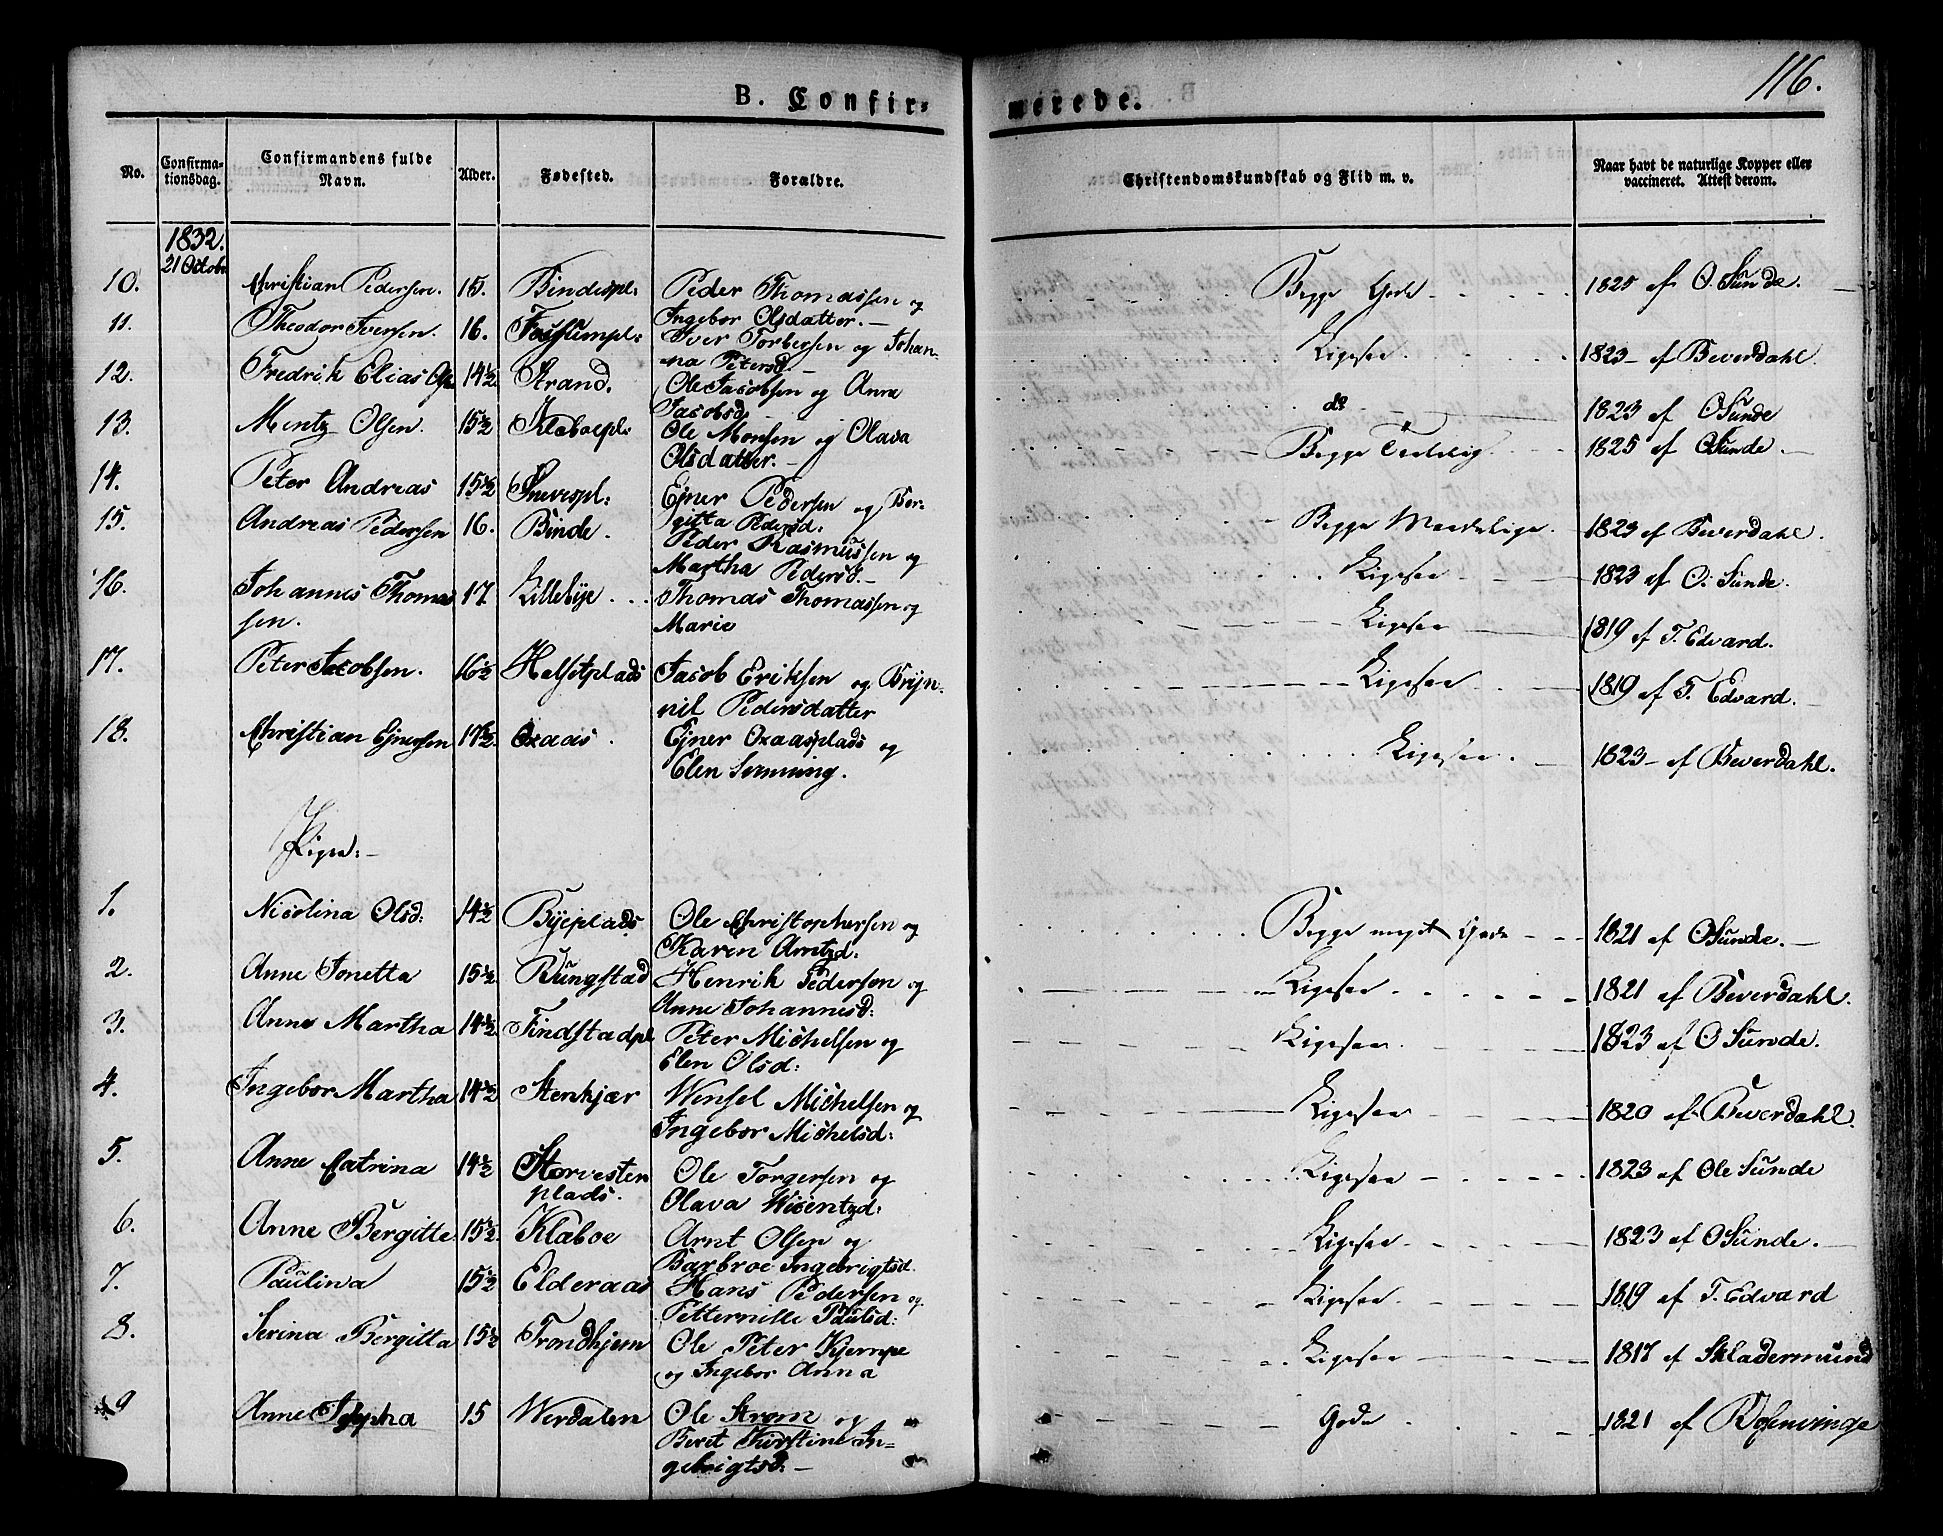 116.
B. Confirmerede.
No. Confirmationsdag. Confirmandens fulde Navn. Alder. Fødested. Forældre. Christendomskundskab og Flid m. v. Naar havt de naturlige Kopper eller vaccineret. Attest derom.
1832.
21 Octobr
10. Christian Pedersen. 15. Bindespl: Peder Thomassen og Begge Gode 1825 af O. Sunde.
Ingebor Olsdatter.
11. Theodor Iversen. 16. Fossumpl: Iver Torbersen og Johan- Ligesaa. 1823 af Beverdahl.
na Petersd.
12. Fredrik Elias Ols 14½ Strand. Ole Jacobsen og Anne do 1823 af O Sunde
Jacobsd.
13. Mentz Olsen. 15½ Klæboepl: Ole Monsen og Olava Begge 1825 af O Sunde.
Olsdatter.
14. Peter Andreas 15½ Ejner Pedersen og Ber- Begge Maadelige. 1823 af Beverdahl.
gitta Pedersd:
15. Andreas Pedersen 16. Binde. Peder Rasmussen og Ligesaa 1823 af O. Sunde.
Martha Pedersd.
16. Johannes Thomas 17 Killebye Thomas Thomassen og Ligesaa 1819 af T. Edvard.
sen. Marie
17. Peter Jacobsen. 16½ Helsetplads Jacob Eriksen og Bryn- Ligesaa 1819 af T. Edvard.
nil Pedersdatter
18. Christian Ejnersen 17½ Oxaas. Ejner Oxaasplads og Ligesaa. 1823 af Beverdahl.
Elen
Piger:
1. Nicolina Olsd: 14½ Byeplads Ole Christophersen og Begge meget Gode 1821 af O Sunde.
Karen Arntzd:
2. Anne Jonetta 15½ Rungstad Henrik Pedersen og Ligesaa 1821 af Beverdahl.
Anne Johannesd:
3. Anne Martha 14½ Findstadpl Peter Michelsen og Ligesaa. 1823 af O Sunde.
Elen Olsd:
4. Ingebor Martha 14½ Stenkjær Wensel Michelsen og Ligesaa 1820 af Beverdahl.
Ingebor Michelsd:
5. Anne Catrina 14½ Storvesterplads. Ole Torgersen og Ligesaa 1823 af Ole Sunde
Olava Wicentzd:
6. Anne Bergitte 15½ Klæboe Arnt Olsen og Ligesaa 1823 af O Sunde.
Barbroe Ingebrigtsd.
7. Paulina 15½ Elderaas Hans Pedersen og Ligesaa 1819 af T. Edvard
Petternille Paulsd:
8. Serina Bergitta 15½ Trondhjem Ole Peter Kjempe Ligesaa 1817 af Skladermund
og Ingebor Anna
9 Anne Josepha 15 Werdalen Ole Strøm og Gode 1821 af Rosenvinge
Beret Kirstine In-
gebrigtsd: